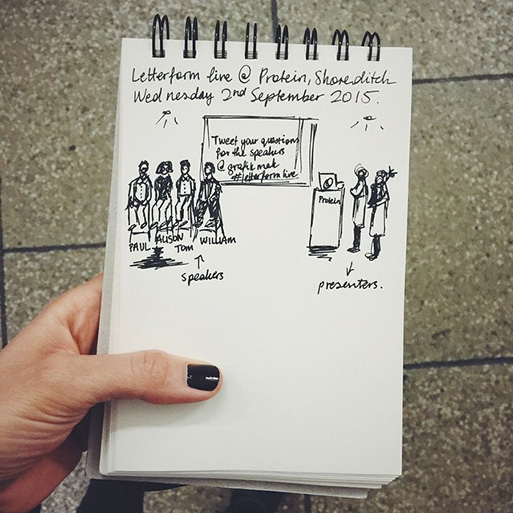 Letterform live @ Protein, Shoreditch
Wednesday 2nd September 2015.
Tweet your questions
for the speakers
@grafikmak
#letterform live
Protein
PAUL
ALISON
TOM
WILLIAM
speakers
presenters.